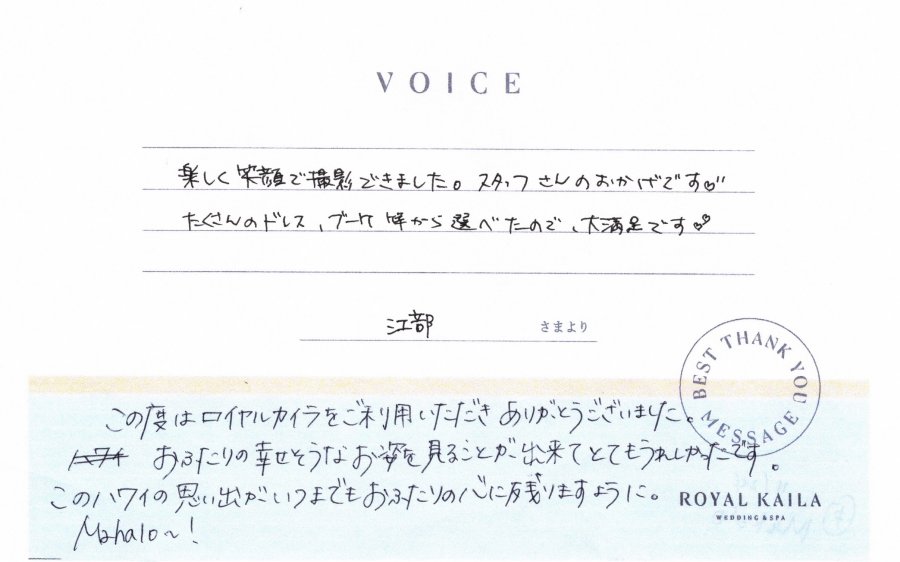 VOICE
楽しく笑顔で撮影できました。スタッフさんのおかげです♡"
たくさんのドレス、ブーケ等から選べたので、大満足です♡
江部 さまより
BEST THANK YOU MESSAGE
この度はロイヤルカイラをご利用いただき ありがとうございました。
おふたりの幸せそうなお姿を見ることが出来てとてもうれしかったです。
このハワイの思い出がいつまでもおふたりの心に残りますように。
Mahalo~!
ROYAL KAILA
WEDDING & SPA